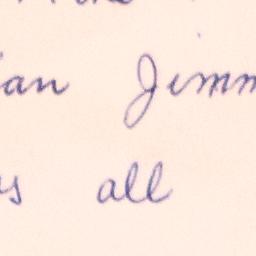 an Jimm
s all